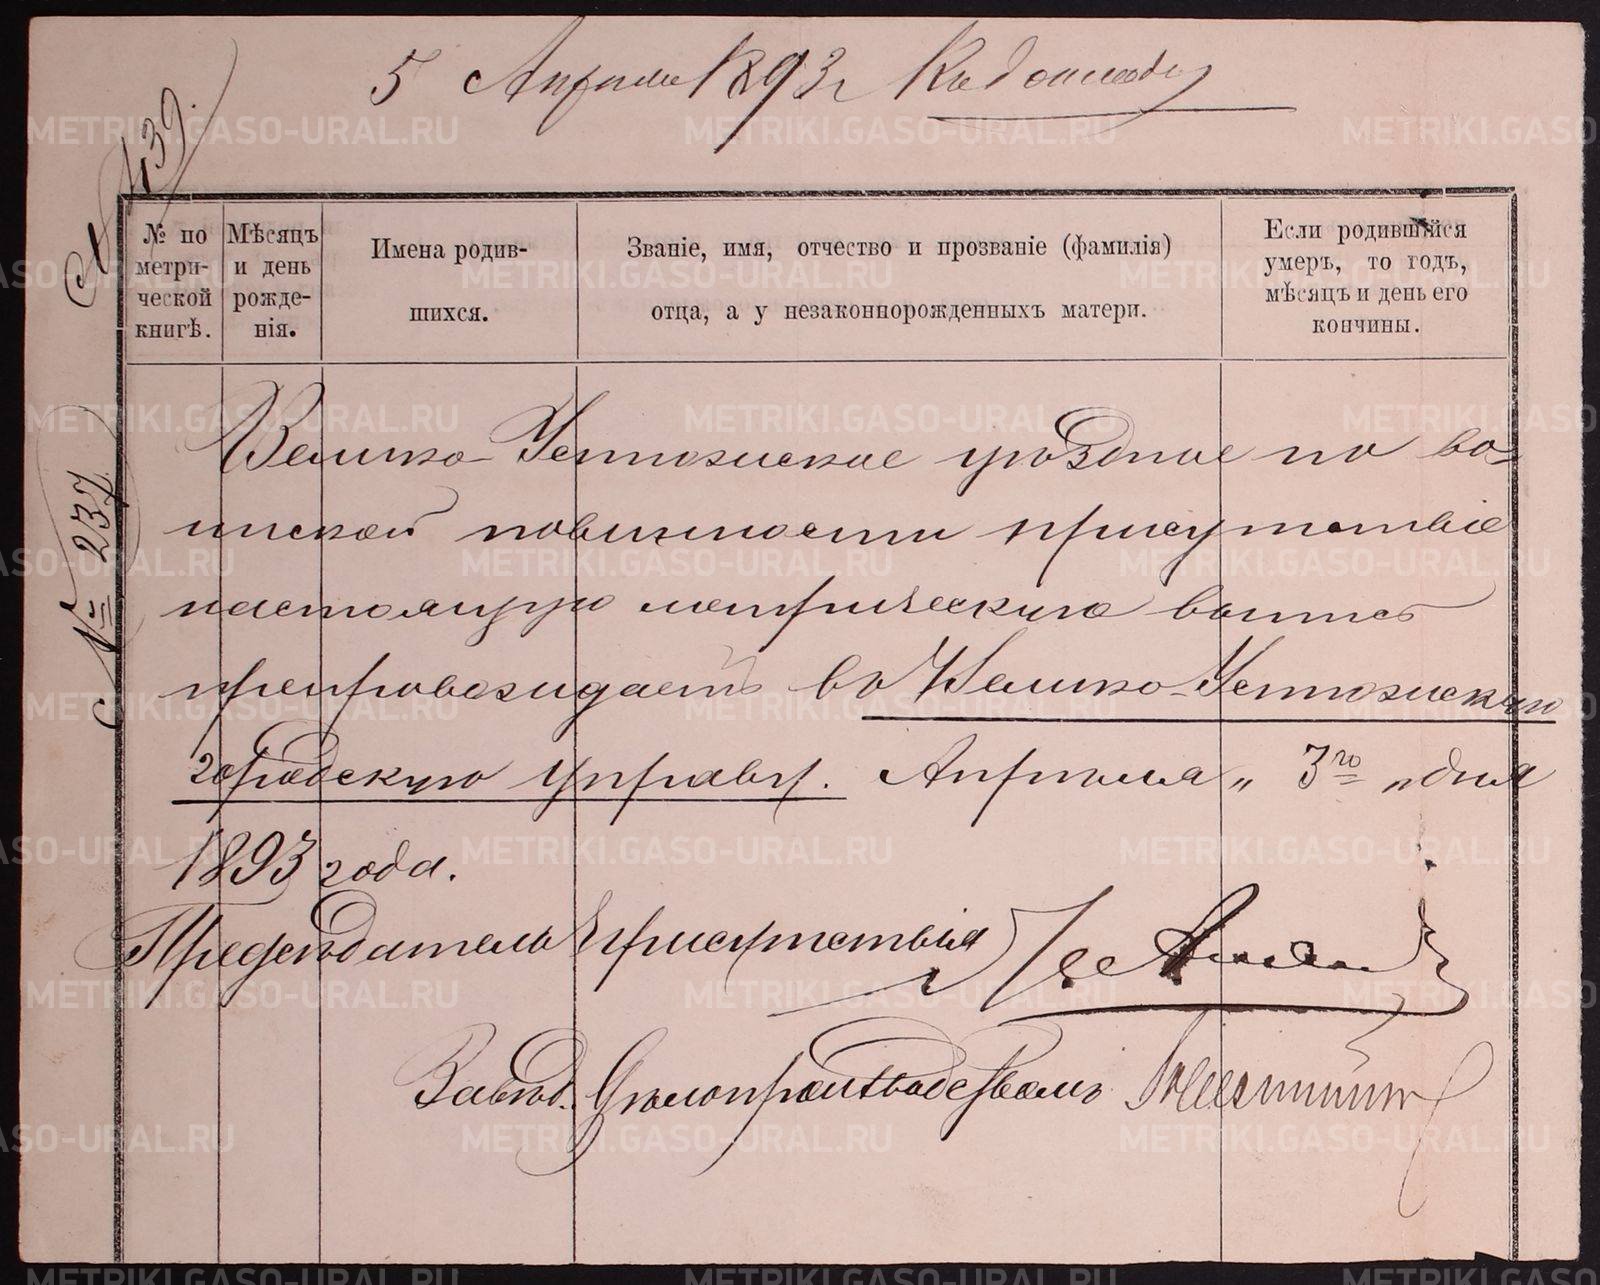 5 Апрѣля 1893 г. Къ докладу
№ 139.
№ 237
№ по метри-ческой книгѣ.
Мѣсяцъ и день рожде-нія.
Имена родив-шихся.
Званіе, имя, отчество и прозваніе (фамилія) отца, а у незаконнорожденныхъ матери.
Если родившійся умеръ, то годъ, мѣсяцъ и день его кончины.
Велико-Устюжское уѣздное по во-
инской повинности присутствіе
настоящую метрическую выпись
препровождаетъ въ Велико-Устюжскую
городскую управу. Апрѣля „ 3го „ дня
1893 года.
Предсѣдатель присутствія
Завѣд. Дѣлопроизводствомъ
METRIKI.GASO-URAL.RU